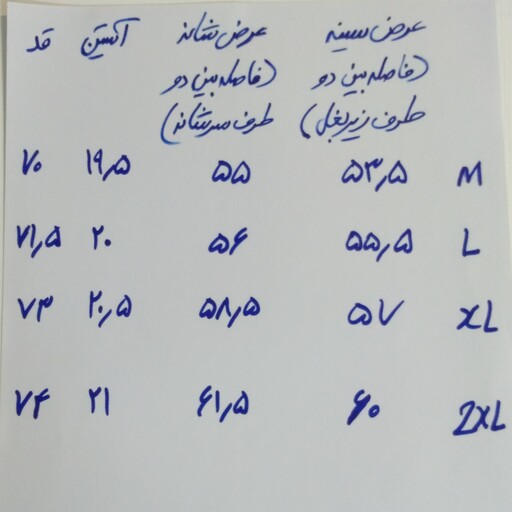 عرض سینه عرض شانه آستین قد
(فاصله بین دو (فاصله بین دو
طرف زیر بغل) طرف سرشانه)
M ۵۳٫۵ ۵۵ ۱۹٫۵ ۷۰
L ۵۵٫۵ ۵۶ ۲۰ ۷۱٫۵
XL ۵۷ ۵۸٫۵ ۲۰٫۵ ۷۳
2XL ۶۰ ۶۱٫۵ ۲۱ ۷۴